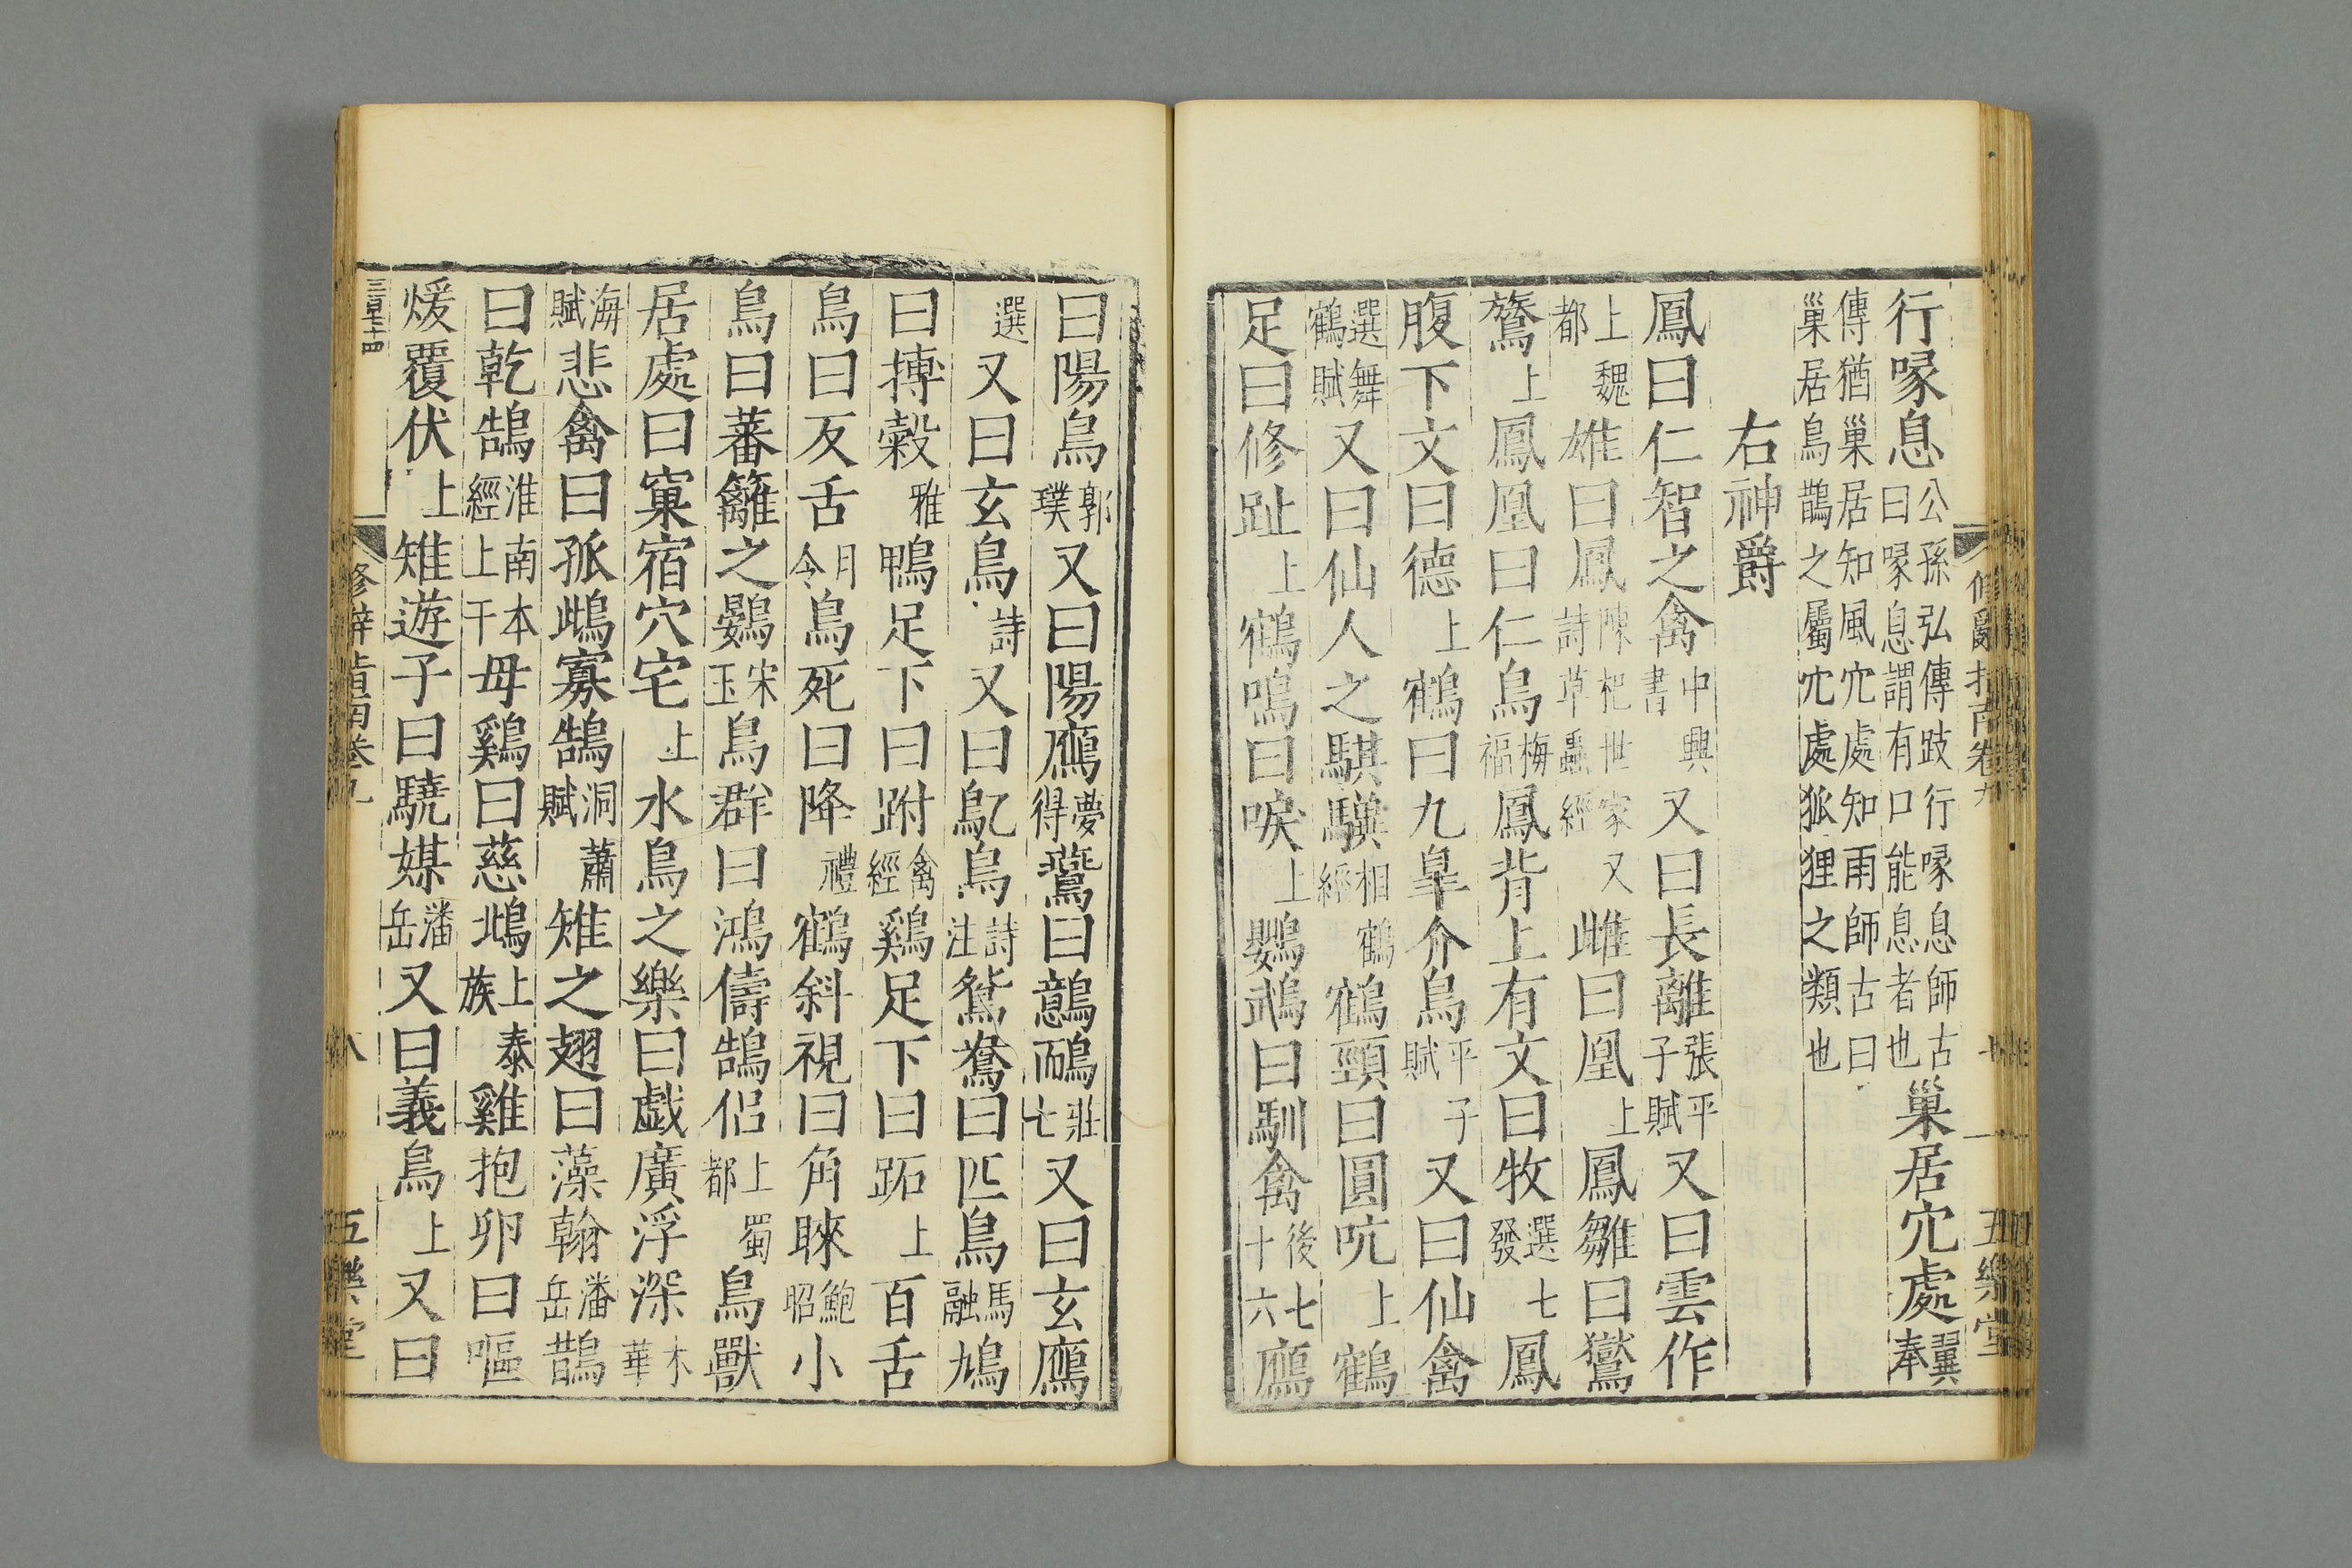 行喙息公孫弘傳跂行喙息師古曰喙息謂有口能息者也巢居宂處翼奉
傳猶巢居知風宂處知雨師古曰
巢居鳥鵲之屬宂處狐狸之類也
右神爵
鳳曰仁智之禽中興書又曰長離張平子賦又曰雲作
上魏都雄曰鳳陳杞世家又詩草蟲經雌曰凰上鳳雛曰鸑
鷟上鳳凰曰仁鳥梅福鳳背上有文曰牧選七發鳳
腹下文曰德上鶴曰九皐介鳥平子賦又曰仙禽
選舞鶴賦又曰仙人之騏驥相鶴經鶴頸曰圓吭上鶴
足曰修趾上鶴鳴曰唳上鸚鵡曰馴禽後七十六鴈
曰陽鳥郭璞又曰陽鴈夢得鷰曰鷾鴯莊七又曰玄鴈
選又曰玄鳥詩又曰鳦鳥詩注鴛鴦曰匹鳥馬融鳩
曰摶穀雅鴨足下曰跗禽經鷄足下曰跖上百舌
鳥曰反舌月令鳥死曰降禮鶴斜視曰角睞鮑昭小
鳥曰蕃籬之鷃宋玉鳥群曰鴻儔鵠侶上蜀都鳥獸
居處曰窠宿穴宅上水鳥之樂曰戯廣浮深木華
海賦悲禽曰孤鴜寡鵠洞蕭賦雉之翅曰藻翰潘岳鵲
曰乾鵠淮南本經上干母鷄曰慈鴜上泰族雞抱卵曰嘔
煖覆伏上雉遊子曰驍媒潘岳又曰義鳥上又曰
三百七十四
修辭指南卷九
八
五樂堂